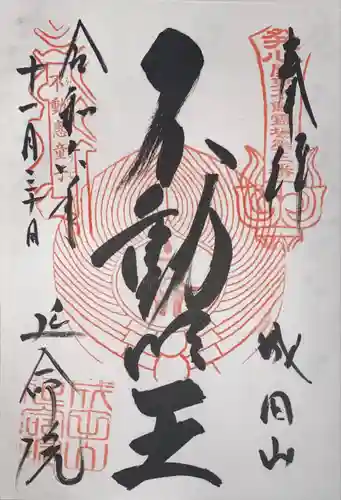 奉拝
成田山
不動明王
令和六年
十一月三十日
延命院
不動慈童子